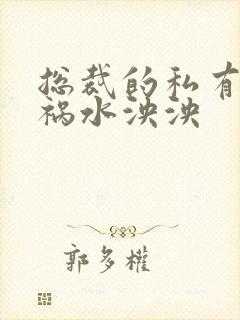 总裁的私有
祸水泱泱
郭多權